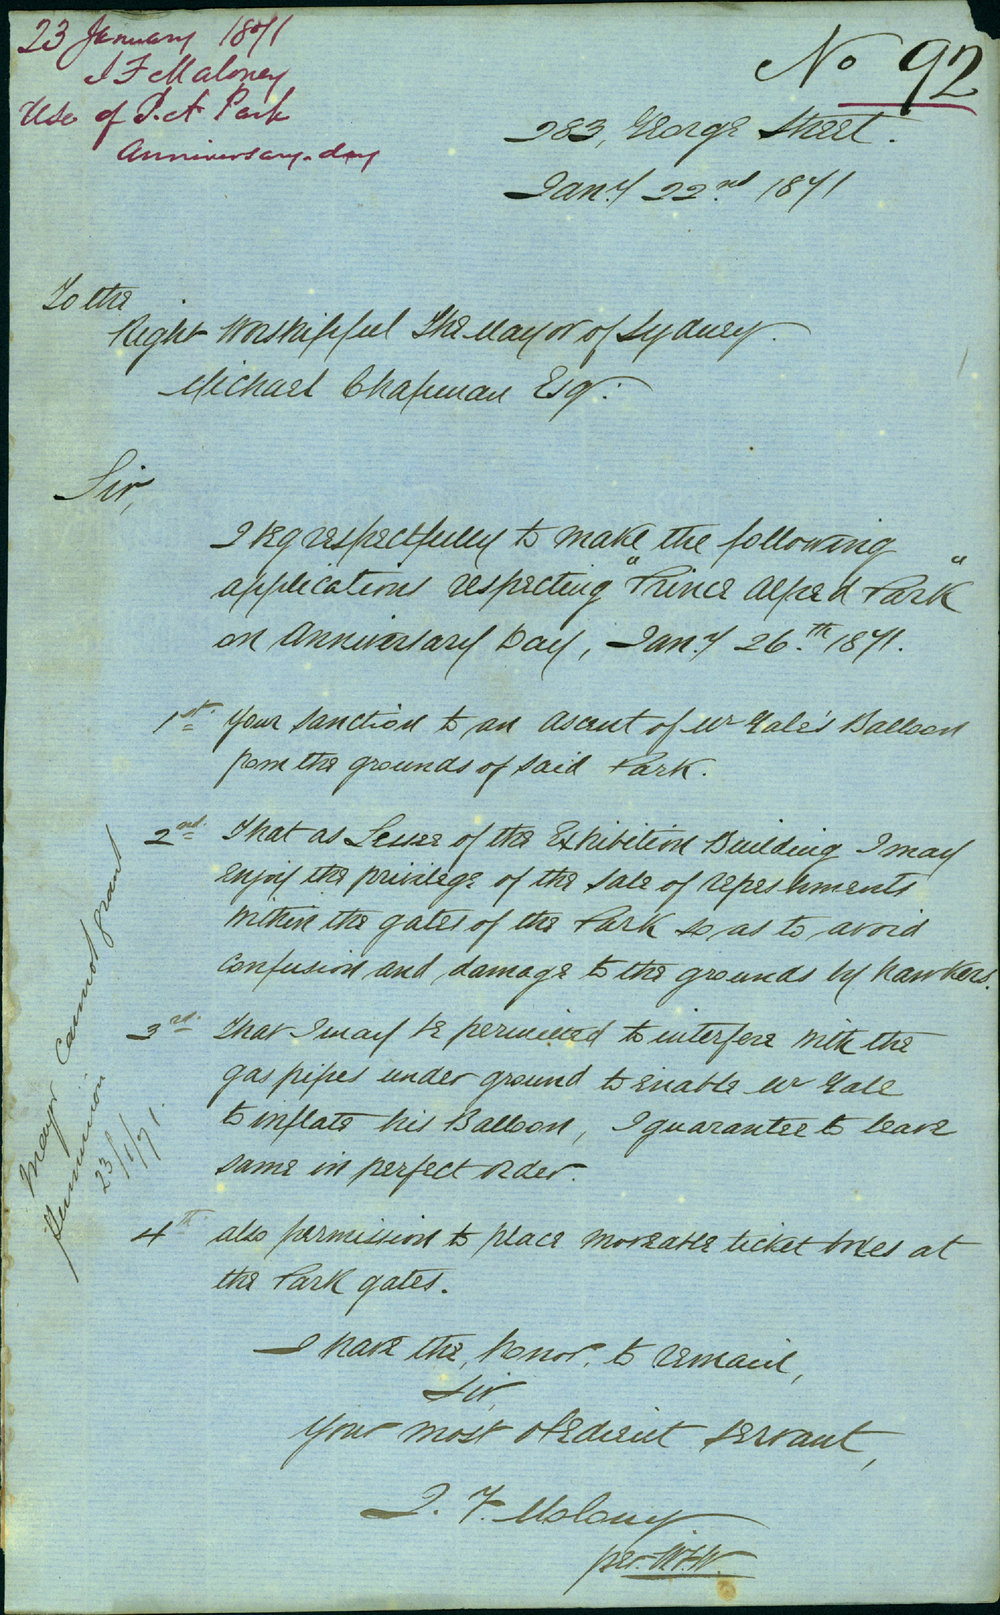 23 January 1871
J F Maloney
Use of P. A Park
Anniversary-day
No 92
283, George Street.
Jany 22nd 1871
To the
Right Worshipful The Mayor of Sydney.
Michael Chapman Esq:
Sir,
I beg respectfully to make the following
applications respecting "Prince Alfred Park"
on Anniversary Day, Jany 26th 1871.
1st. Your sanction to an ascent of Mr Gale's Balloon
from the grounds of said Park.
2nd. That as Lessee of the Exhibition Building I may
enjoy the privilege of the sale of refreshments
within the gates of the Park so as to avoid
confusion and damage to the grounds by hawkers.
3rd. That I may be permitted to interfere with the
gas pipes under ground to enable Mr Gale
to inflate his Balloon, I guarantee to leave
same in perfect order.
4th also permission to place moveable ticket boxes at
the Park gates.
I have the honor, to remain,
Sir,
Your most obedient servant,
J. F. Maloney
per.
Mayor cannot grant
permission
23/1/71.